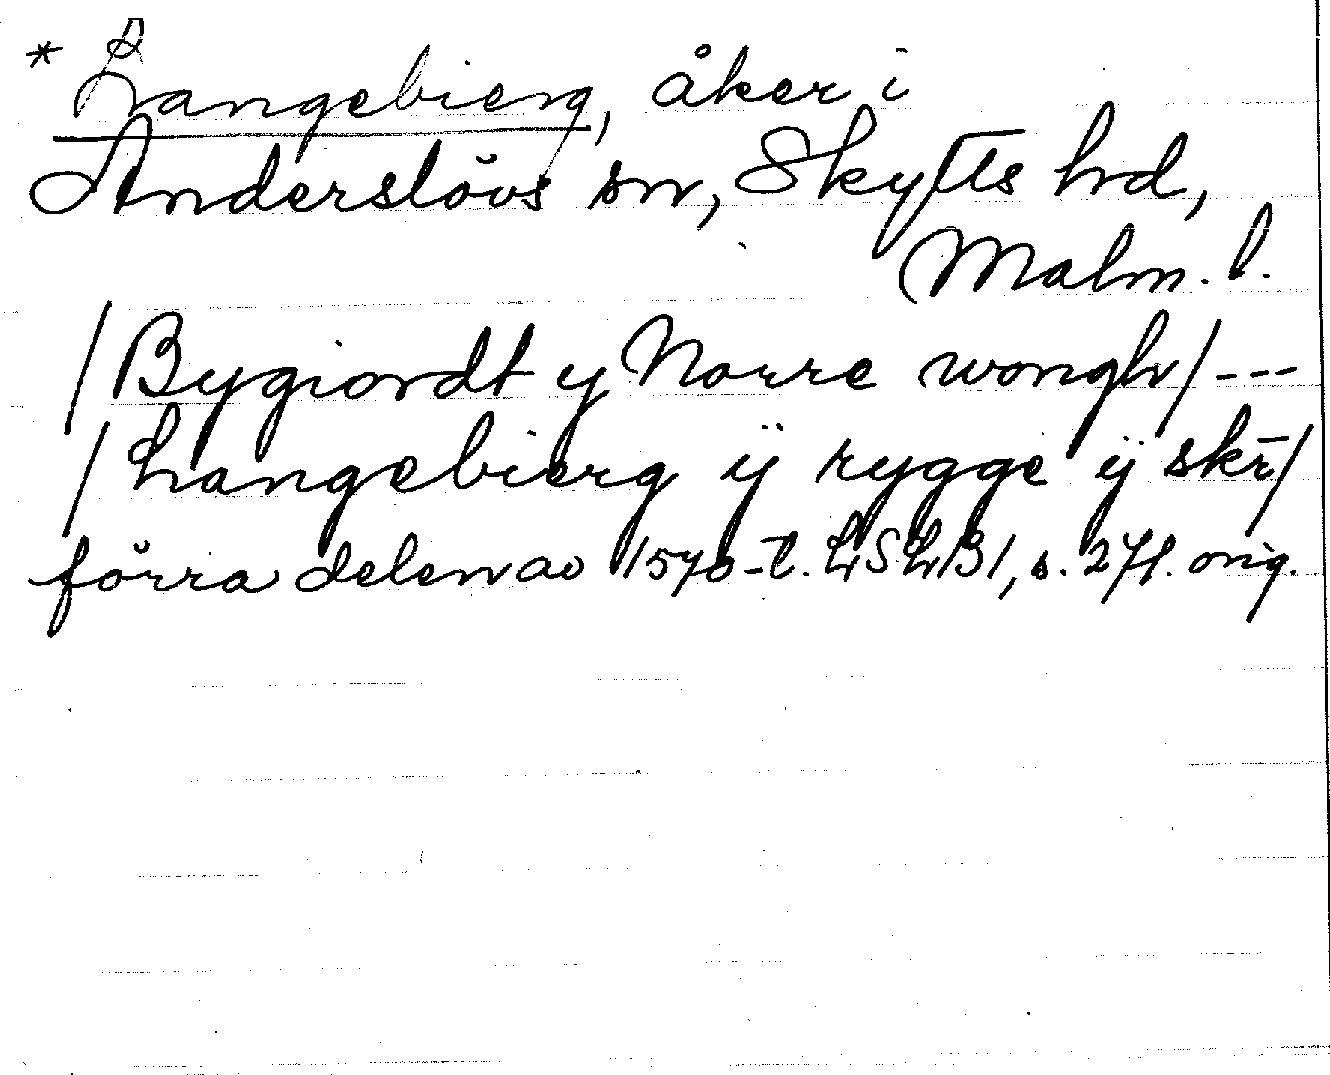 * Langebierg, åker i
Anderslövs sn, Skytts hd,
Malm. l.
/Bygiordt y Norre wongh/ ---
/Langebierg ÿ rygge ÿ skr̄/
förra delen av 1570-t. LSLB1, s. 27f. orig.